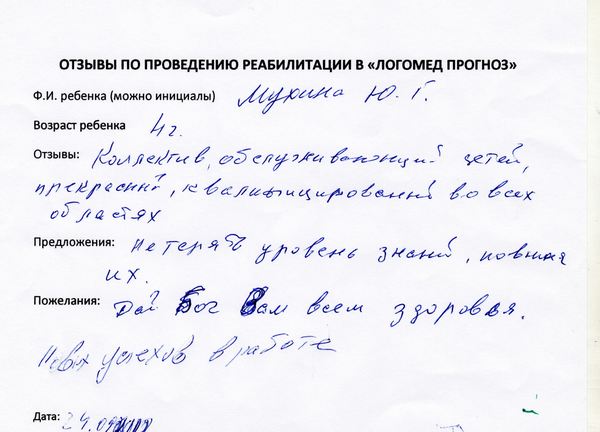 ОТЗЫВЫ ПО ПРОВЕДЕНИЮ РЕАБИЛИТАЦИИ В «ЛОГОМЕД ПРОГНОЗ»
Ф.И. ребенка (можно инициалы) Мухина Ю. Г.
Возраст ребенка 4 г.
Отзывы: Коллектив, обслуживающий детей,
прекрасный, квалифицированный во всех
областях
Предложения: Не терять уровень знаний,
их.
Пожелания: Дай Бог Вам всем здоровья.
Новых успехов в работе
Дата: 24.09